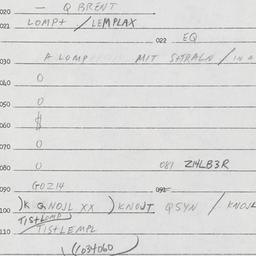 020 — Q BRENT
021 LOMP+ / LEMPLAX
022 EQ
030 A LOMP MIT SHTRALN / IN A
040 O
050 O
060 $
070 O
080 O 081 Z14LB3R
090 GOZ14 091
100 )K QNOJL XX )KNOJT QSYN / KNOJL
TIS+LOMP
110 TIS+LEMPL